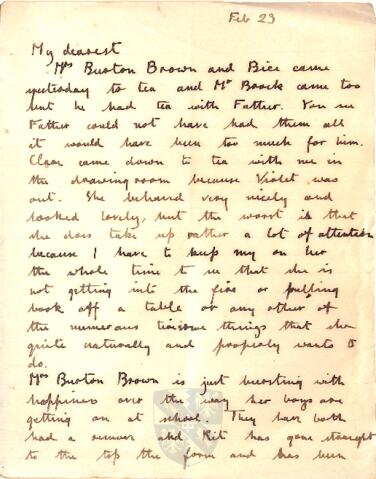 Feb 23
My dearest
Mrs Burton Brown and Bice came
yesterday to tea and Mr Brock came too
but he had tea with Father. You see
Father could not have had them all
it would have been too much for him.
Clare came down to tea with me in
the drawingroom because Violet was
out. She behaved very nicely and
looked lovely, but the worst is that
she does take up rather a lot of attention
because I have to keep my on her
the whole time to see that she is
not getting into the fire or pulling
book off a table or any other of
the numerous tiresome things that she
quite naturally and properly wants to
do.
Mrs Burton Brown is just bursting with
happiness over the way her boys are
getting on at school. They have both
had a remove and Kit has gone straight
to the top the form and has been